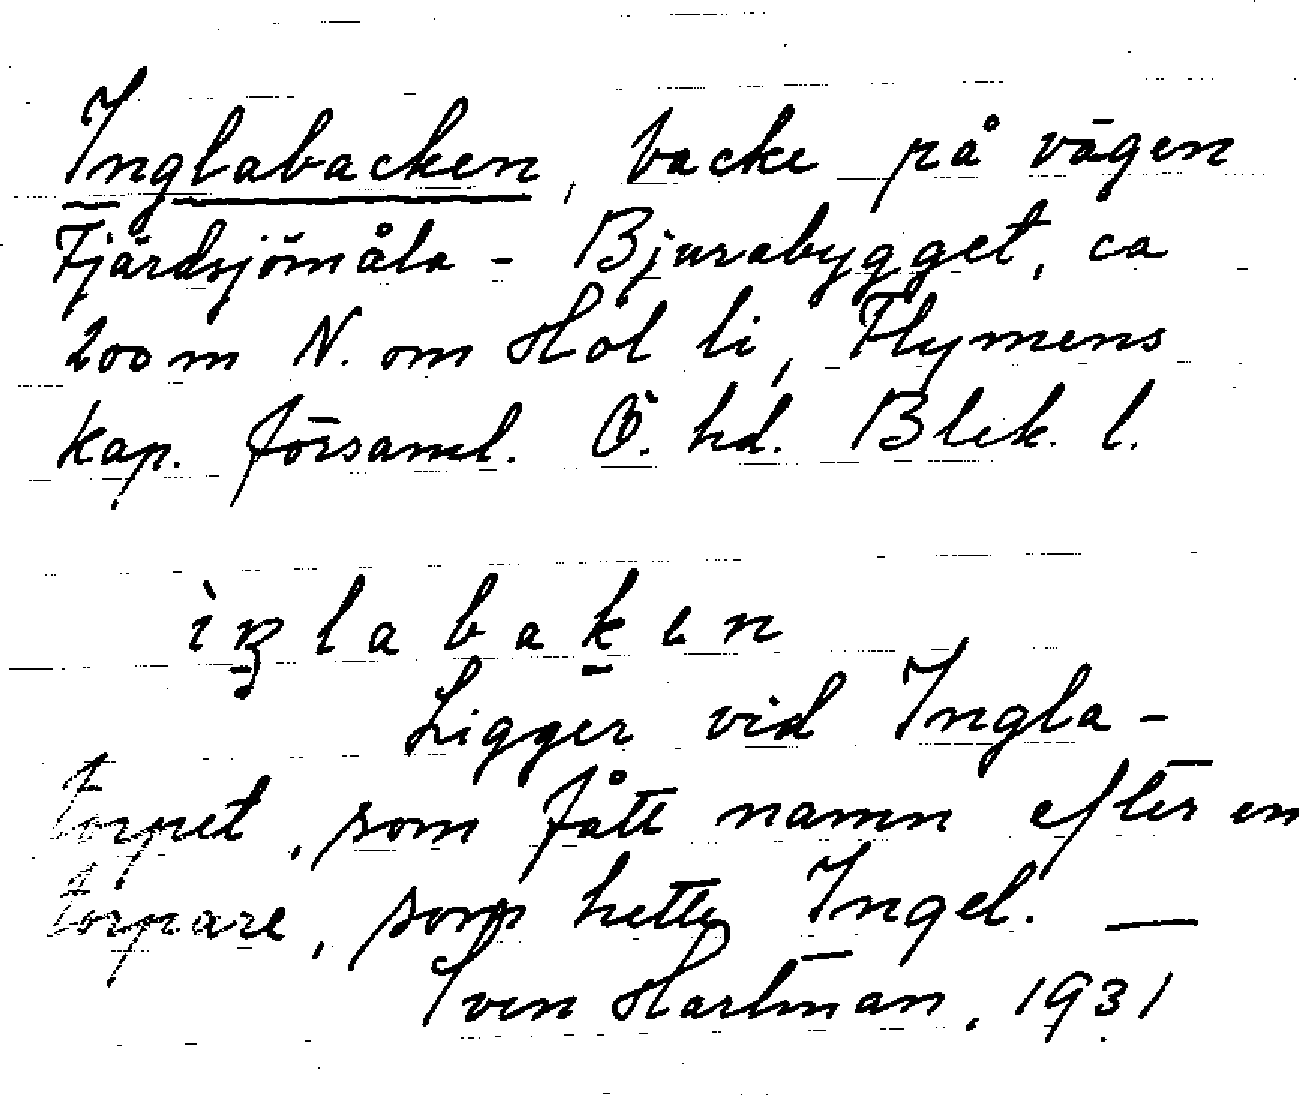 Inglabacken, backe på vägen
Fjärdsjömåla - Bjurabygget, ca
200 m N. om Höl li, Flymens
kap. församl. Ö. hd. Blek. l.
Ligger vid Ingla-
torpet, som fått namn efter en
torpare, som hette Ingel. —
Sven Hartman, 1931